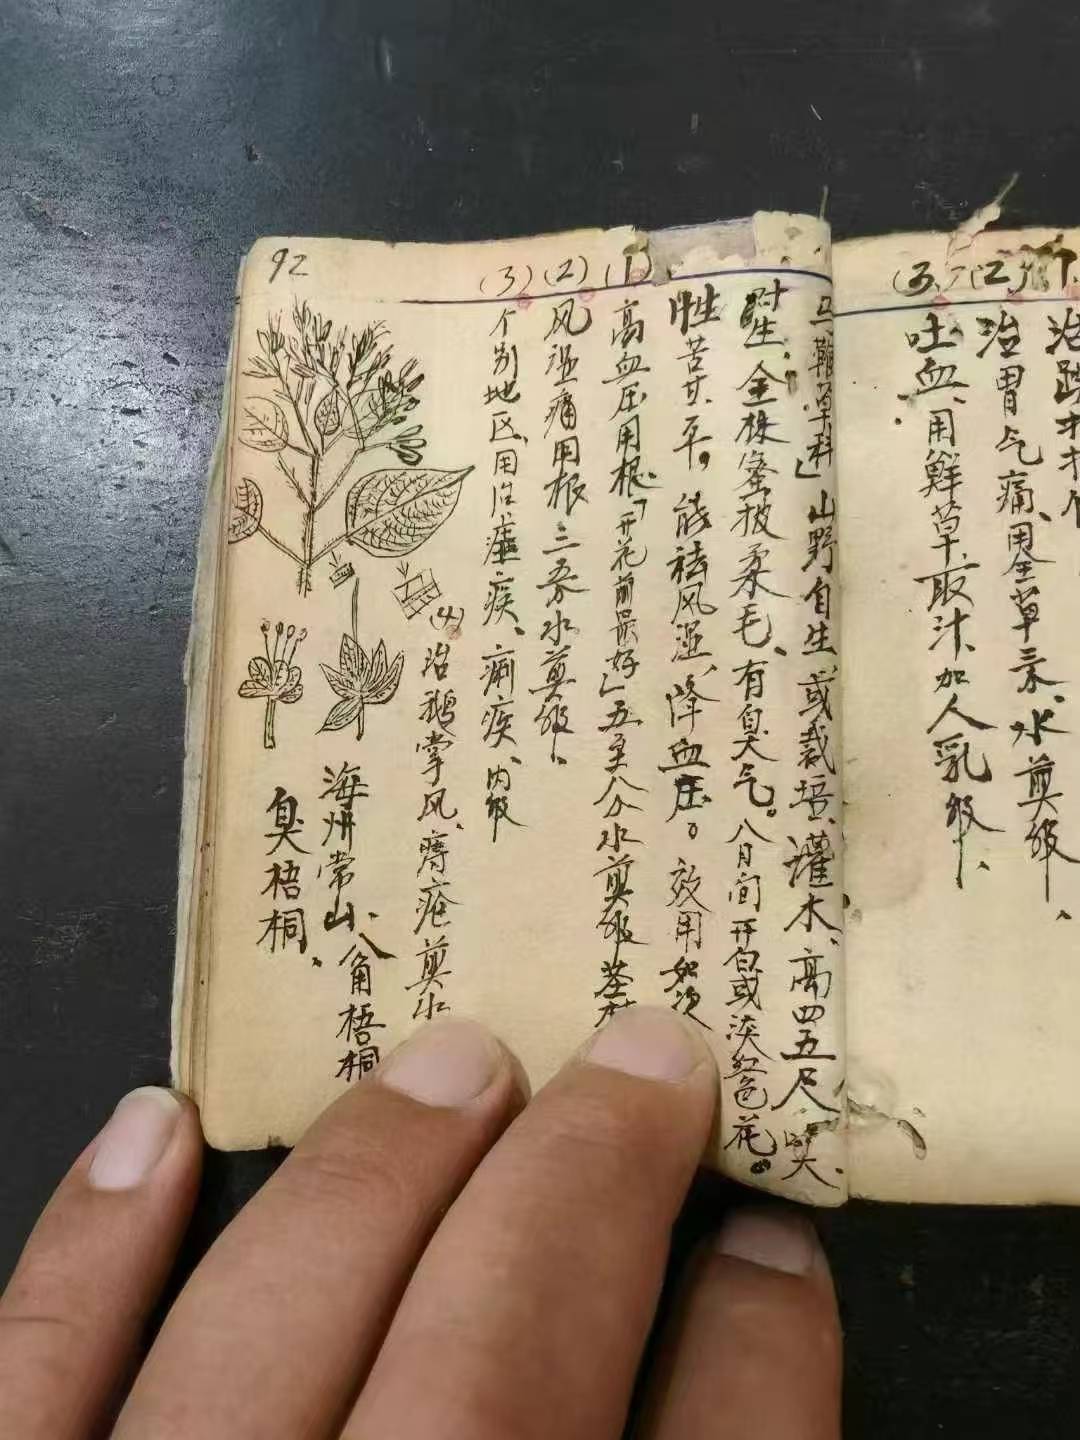 治跌打
治胃气痛、用全草三汆、水煎服、
吐血、用鲜草取汁加人乳服、
(1)
(2)
(3)
马鞭草科」山野自生或栽培、灌木、高四五尺、
对生、全株密披柔毛、有臭气。八月间开白或淡红色花。
性苦甘平。能祛风湿、降血压。效用如次
(1)
高血压用根「开花前最好」五至八分水煎服茎
(2)
风湿痛用根三汆水煎服、
(3)
个别地区、用治疟疾、痢疾、内服
(4)
治鹅掌风、痔疮煎水
海州常山、八角梧桐
臭梧桐、
92